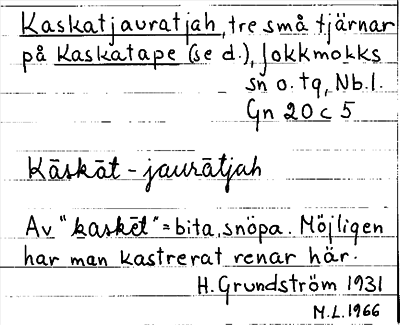 Kaskatjauratjah, tre små tjärnar
på Kaskatape (se d.), Jokkmokks
sn o. tq, Nb.l.
Gn 20 c 5
Kāskāt - jaurātjah
Av "kaskēt" = bita, snöpa. Möjligen
har man kastrerat renar här.
H. Grundström 1931
M.L. 1966